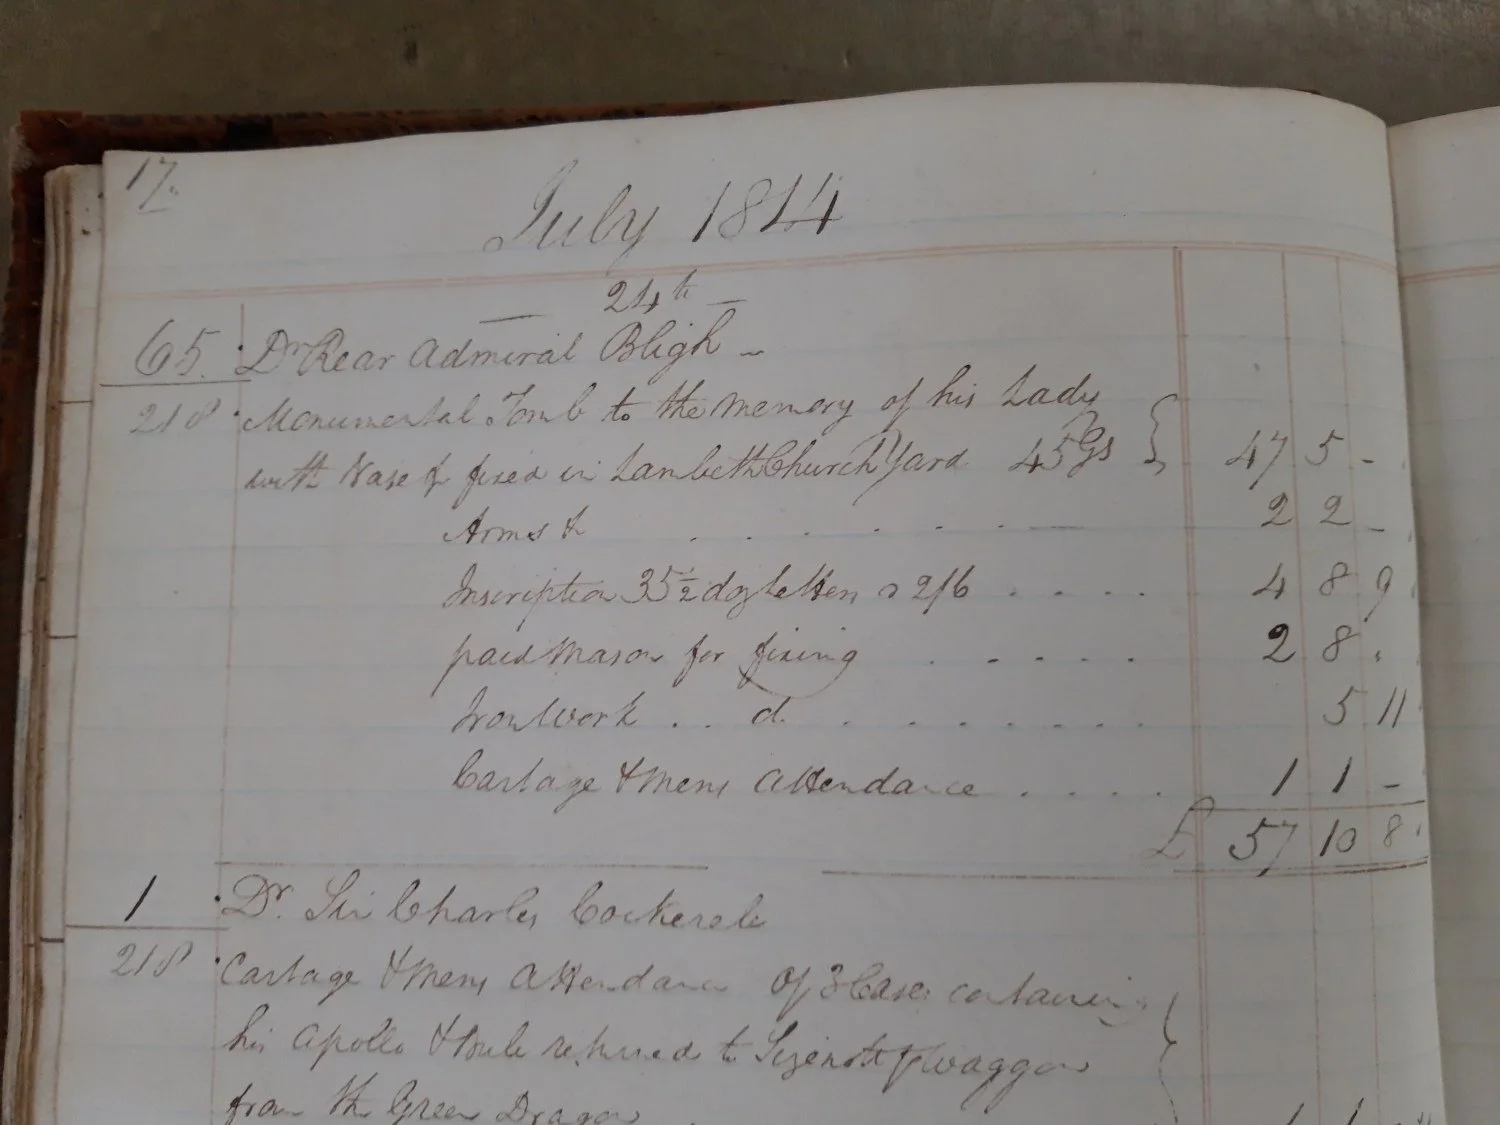 17.
July 1814
24th
65. Dr Rear Admiral Bligh
218 Monumental Tomb to the Memory of his Lady
with Vase & fixed in Lambeth Church Yard 45 Gs 47 5 -
Arms & 2 2 -
Inscription 35½ doz Letters a 2/6 4 8 9
paid Mason for fixing 2 8 .
Iron Work .. d. 5 11
Cartage & Mens Attendance 1 1 -
£ 57 10 8
1 Dr. Sir Charles Cockerele
218 Cartage & Mens Attendance of 3 Cases containing
his Apollo & returned to waggon
from the Green Dragon 1 1